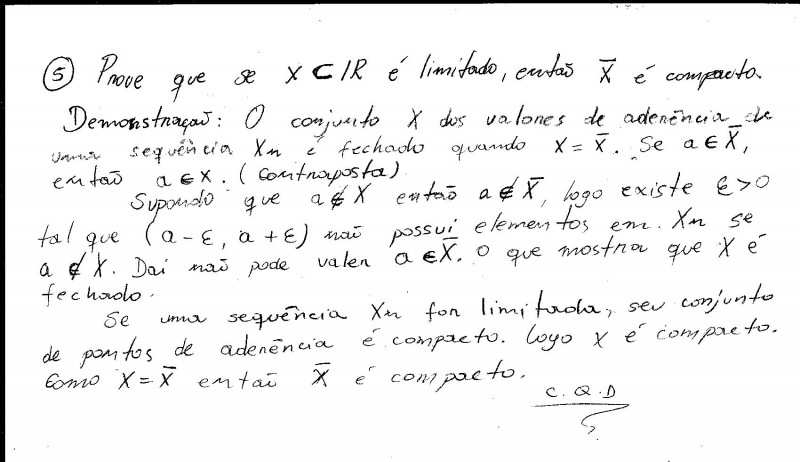 ⑤ Prove que se X ⊂ IR é limitado, então X̅ é compacto.
Demonstração: O conjunto X dos valores de aderência de
uma sequência Xn é fechado quando X = X̅. Se a ∈ X̅,
então a ∈ X. (Contraposta)
Supondo que a ∉ X então a ∉ X̅, logo existe ε > 0
tal que (a - ε, a + ε) não possui elementos em Xn se
a ∉ X. Daí não pode valer a ∈ X̅. O que mostra que X é
fechado.
Se uma sequência Xn for limitada, seu conjunto
de pontos de aderência é compacto. Logo X é compacto.
Como X = X̅ então X̅ é compacto.
C.Q.D